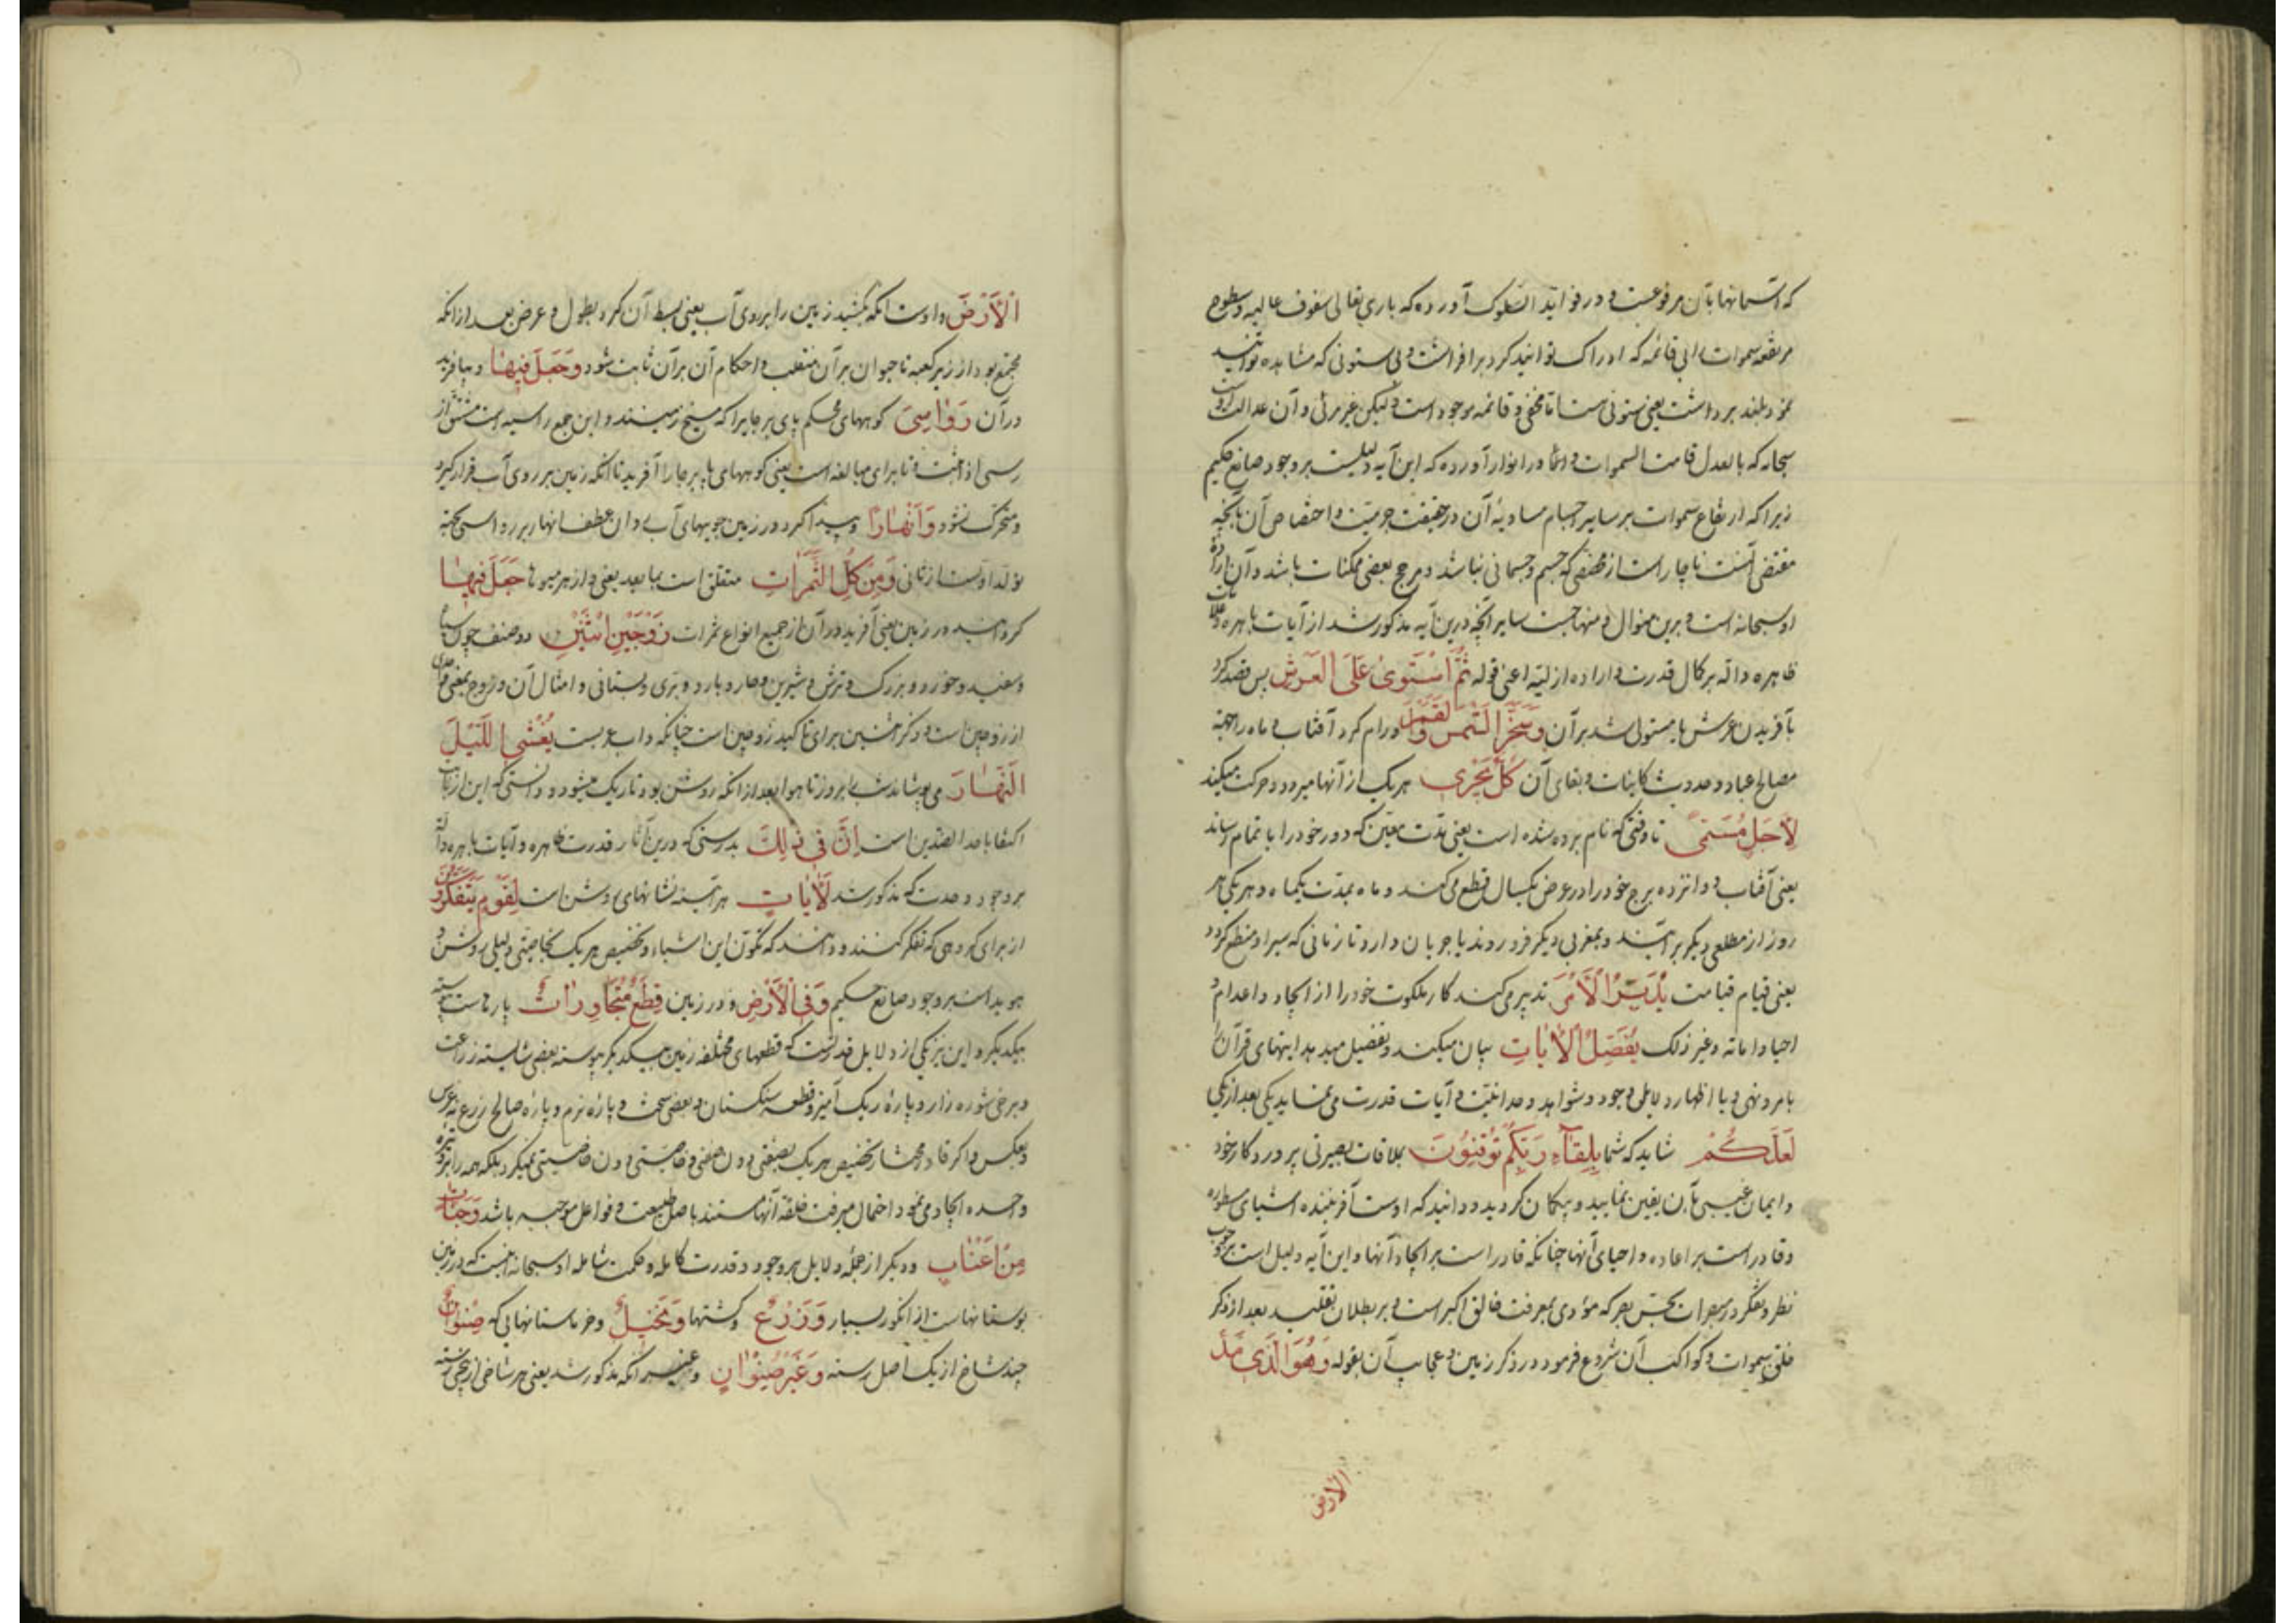 که آسمانها بآن مرفوعست و در فواتد السلوک آورده که باری تعالی سقوف عالیه و سطوح
مرتفعه سموات را بی قائمه که ادراک توانید کرد برافراشت و بی ستونی که مشاهده توانید
نمود بلند برداشت یعنی ستونی هست اما مخفی و قائمه موجود است و لیکن غیر مرئی و آن عدالت اوست
سبحانه که بالعدل قامت السموات و اما در انوار آورده که این آیه دلیلیست بر وجود صانع حکیم
زیرا که ارتفاع سموات بر سایر اجسام مساویهٔ آن در حقیقت جرمیت و اختصاص آن بآنچه
مقتضی آنست ناچار است از مخصصی که جسم و جسمانی نباشد و مرجح بعضی ممکنات باشد و آن اراده
او سبحانه است و برین منوال و منهاجست سایر آنچه درین آیه مذکور شد از آیات باهره و علامات
ظاهره داله بر کمال قدرت و اراده ازلیه اعنی قوله ثُمَّ اسْتَوىٰ عَلَى الْعَرْشِ پس قصد کرد
بآفریدن عرش یا مستولی شد بر آن وَسَخَّرَ الشَّمْسَ وَالْقَمَرَ و رام کرد آفتاب و ماه را جهة
مصالح عباد و حدوث کاینات و بقای آن كُلٌّ يَجْرِي هر یک از آنها میرود و حرکت میکند
لِاَجَلٍ مُسَمًّى تا وقتی که نام برده شده است یعنی مدت معین که دور خود را باتمام رساند
یعنی آفتاب دوانزده برج خود را در عرض یکسال قطع می کند و ماه بمدت یکماه و هر یکی هر
روز از مطلعی دیگر برآیند و بمغربی دیگر فرو روند یا جریان دارد تا زمانی که سیر او منقطع گردد
یعنی قیام قیامت يُدَبِّرُ الْاَمْرَ تدبیر می کند کار ملکوت خود را از ایجاد و اعدام و
احیا و اماته و غیر ذلک يُفَصِّلُ الْاٰيَاتِ بیان میکند و تفصیل میدهد آیتهای قرآن را
بامر و نهی و یا اظهار دلایل وجود و شواهد وحدانیت و آیات قدرت می نماید یکی بعد از یکی
لَعَلَّكُمْ شاید که شما بِلِقَآءِ رَبِّكُمْ تُوقِنُونَ بملاقات بصیرتی پروردکار خود
و ایمان غیبی بآن یقین نمایید و بیگمان گردید و دانید که اوست آفریننده اشیای مسطوره
و قادر است بر اعاده و احیای آنها چنانکه قادر است بر ایجاد آنها و این آیه دلیل است بر وجوب
نظر و تفکر در مبصرات بحس بصر که مؤدی بمعرفت خالق اکبر است و بر بطلان تقلید بعد از ذکر
خلق سموات و کواکب آن شروع فرمود در ذکر زمین و عجایب آن بقوله وَهُوَ الَّذِي مَدَّ
الارض
الْاَرْضَ و اوست آنکه بکشید زمین را بر روی آب یعنی بسط آن کرد بطول و عرض بعد از آنکه
مجتمع بود از زیر کعبه تا حیوان بر آن منقلب و احکام آن بر آن ثابت شود وَجَعَلَ فِيهَا و بیافرید
در آن رَوٰاسِيَ کوههای محکم پای بر جایرا که میخ زمینند و این جمع راسیه است مشتق از
رسی اذا ثبت و تا برای مبالغه است یعنی کوههای پا بر جا را آفرید تا آنکه زمین بر روی آب قرار گیرد
و متحرک نشود وَاَنْهٰارًا و پیدا کرد در زمین جویهای آب روان عطف انهار بر رواسی بجهة
تولد اوست از ثانی وَمِنْ كُلِّ الثَّمَرَاتِ متعلق است بما بعد یعنی و از هر میوها جَعَلَ فِيهٰا
گردانید در زمین یعنی آفرید در آن از جمیع انواع ثمرات زَوْجَيْنِ اثْنَيْنِ دو صنف چون سیاه
و سفید و خورد و بزرک و ترش و شیرین و حار و بارد و بری و بستانی و امثال آن و زوج بمعنی
از زوجین است و ذکر اثنین برای تأکید زوجین است چنانکه داب عربست يُغْشِي اللَّيْلَ
النَّهٰارَ می پوشاند شب را بروز تا هوا بعد از آنکه روشن بود تاریک میشود و دانستی که این از باب
اکتفا باحد الضدین است اِنَّ فِي ذٰلِكَ بدرستی که درین آثار قدرت ظاهره و آیات باهره داله
بر وجود وحدت که مذکور شد لَاٰيٰاتٍ هر آینه نشانهای روشن است لِقَوْمٍ يَتَفَكَّرُونَ
از برای گروهی که تفکر کنند و دانند که تکون این اشیاء و تخصیص هر یک بخاصیتی دلیلی روشن و
هویداست بر وجود صانع حکیم وَفِي الْاَرْضِ و در زمین قِطَعٌ مُتَجَاوِرٰاتٌ پارهاست پیوسته
بیکدیگر و این نیز یکی از دلایل قدرتست که قطعهای مختلفه زمین بیکدیگر پیوسته بعضی شایسته زراعت
و برخی شوره زار و پاره ریک آمیز و قطعه سنکستان و بعضی سخت و پاره نرم و پاره صالح زرع نه غرس
و بعکس و اگر قادر مختار تخصیص هر یک بصفتی دون صفتی و خاصیتی دون خاصیتی نمیکرد بلکه همه را بر وتیره
واحده ایجاد می نمود احتمال میرفت خلقه آنها مستند باصل طبیعت و فواعل موجبه باشد وَجَنّٰاتٌ
مِنْ اَعْنٰابٍ و دیکر از جمله دلایل بر وجود و قدرت کامله و حکمت شامله او سبحانه اینست که در زمین
بوستانهاست از انکور بسیار وَزَرْعٌ و کشتها وَنَخِيلٌ و خرماستانهایی که صِنْوٰانٌ
چند شاخ از یک اصل رسته وَغَيْرُ صِنْوٰانٍ و غیر آنکه مذکور شد یعنی هر شاخی از بیخی رسته